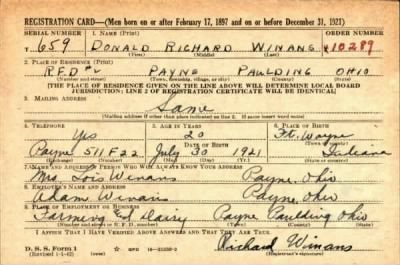 REGISTRATION CARD—(Men born on or after February 17, 1897 and on or before December 31, 1921)
SERIAL NUMBER 1. NAME (Print) ORDER NUMBER
T 659 DONALD RICHARD WINANS 10289
(First) (Middle) (Last)
2. PLACE OF RESIDENCE (Print)
R.F.D #2 PAYNE PAULDING OHIO
(Number and street) (Town, township, village, or city) (County) (State)
[THE PLACE OF RESIDENCE GIVEN ON THE LINE ABOVE WILL DETERMINE LOCAL BOARD
JURISDICTION; LINE 2 OF REGISTRATION CERTIFICATE WILL BE IDENTICAL]
3. MAILING ADDRESS
Same
[Mailing address if other than place indicated on line 2. If same insert word same]
4. TELEPHONE 5. AGE IN YEARS 6. PLACE OF BIRTH
Yes 20 Ft. Wayne
DATE OF BIRTH
Payne 511F22 July 30 1921 Indiana
(Exchange) (Number) (Mo.) (Day) (Yr.) (State or country)
7. NAME AND ADDRESS OF PERSON WHO WILL ALWAYS KNOW YOUR ADDRESS
Mrs. Lois Winans Payne, Ohio
8. EMPLOYER'S NAME AND ADDRESS
Adam Winans Payne, Ohio
9. PLACE OF EMPLOYMENT OR BUSINESS
Farming and Dairy Payne Paulding Ohio
(Number and street or R. F. D. number) (Town) (County) (State)
I AFFIRM THAT I HAVE VERIFIED ABOVE ANSWERS AND THAT THEY ARE TRUE.
D. S. S. Form 1
(Revised 1-1-42) (over)
Richard Winans
(Registrant's signature)